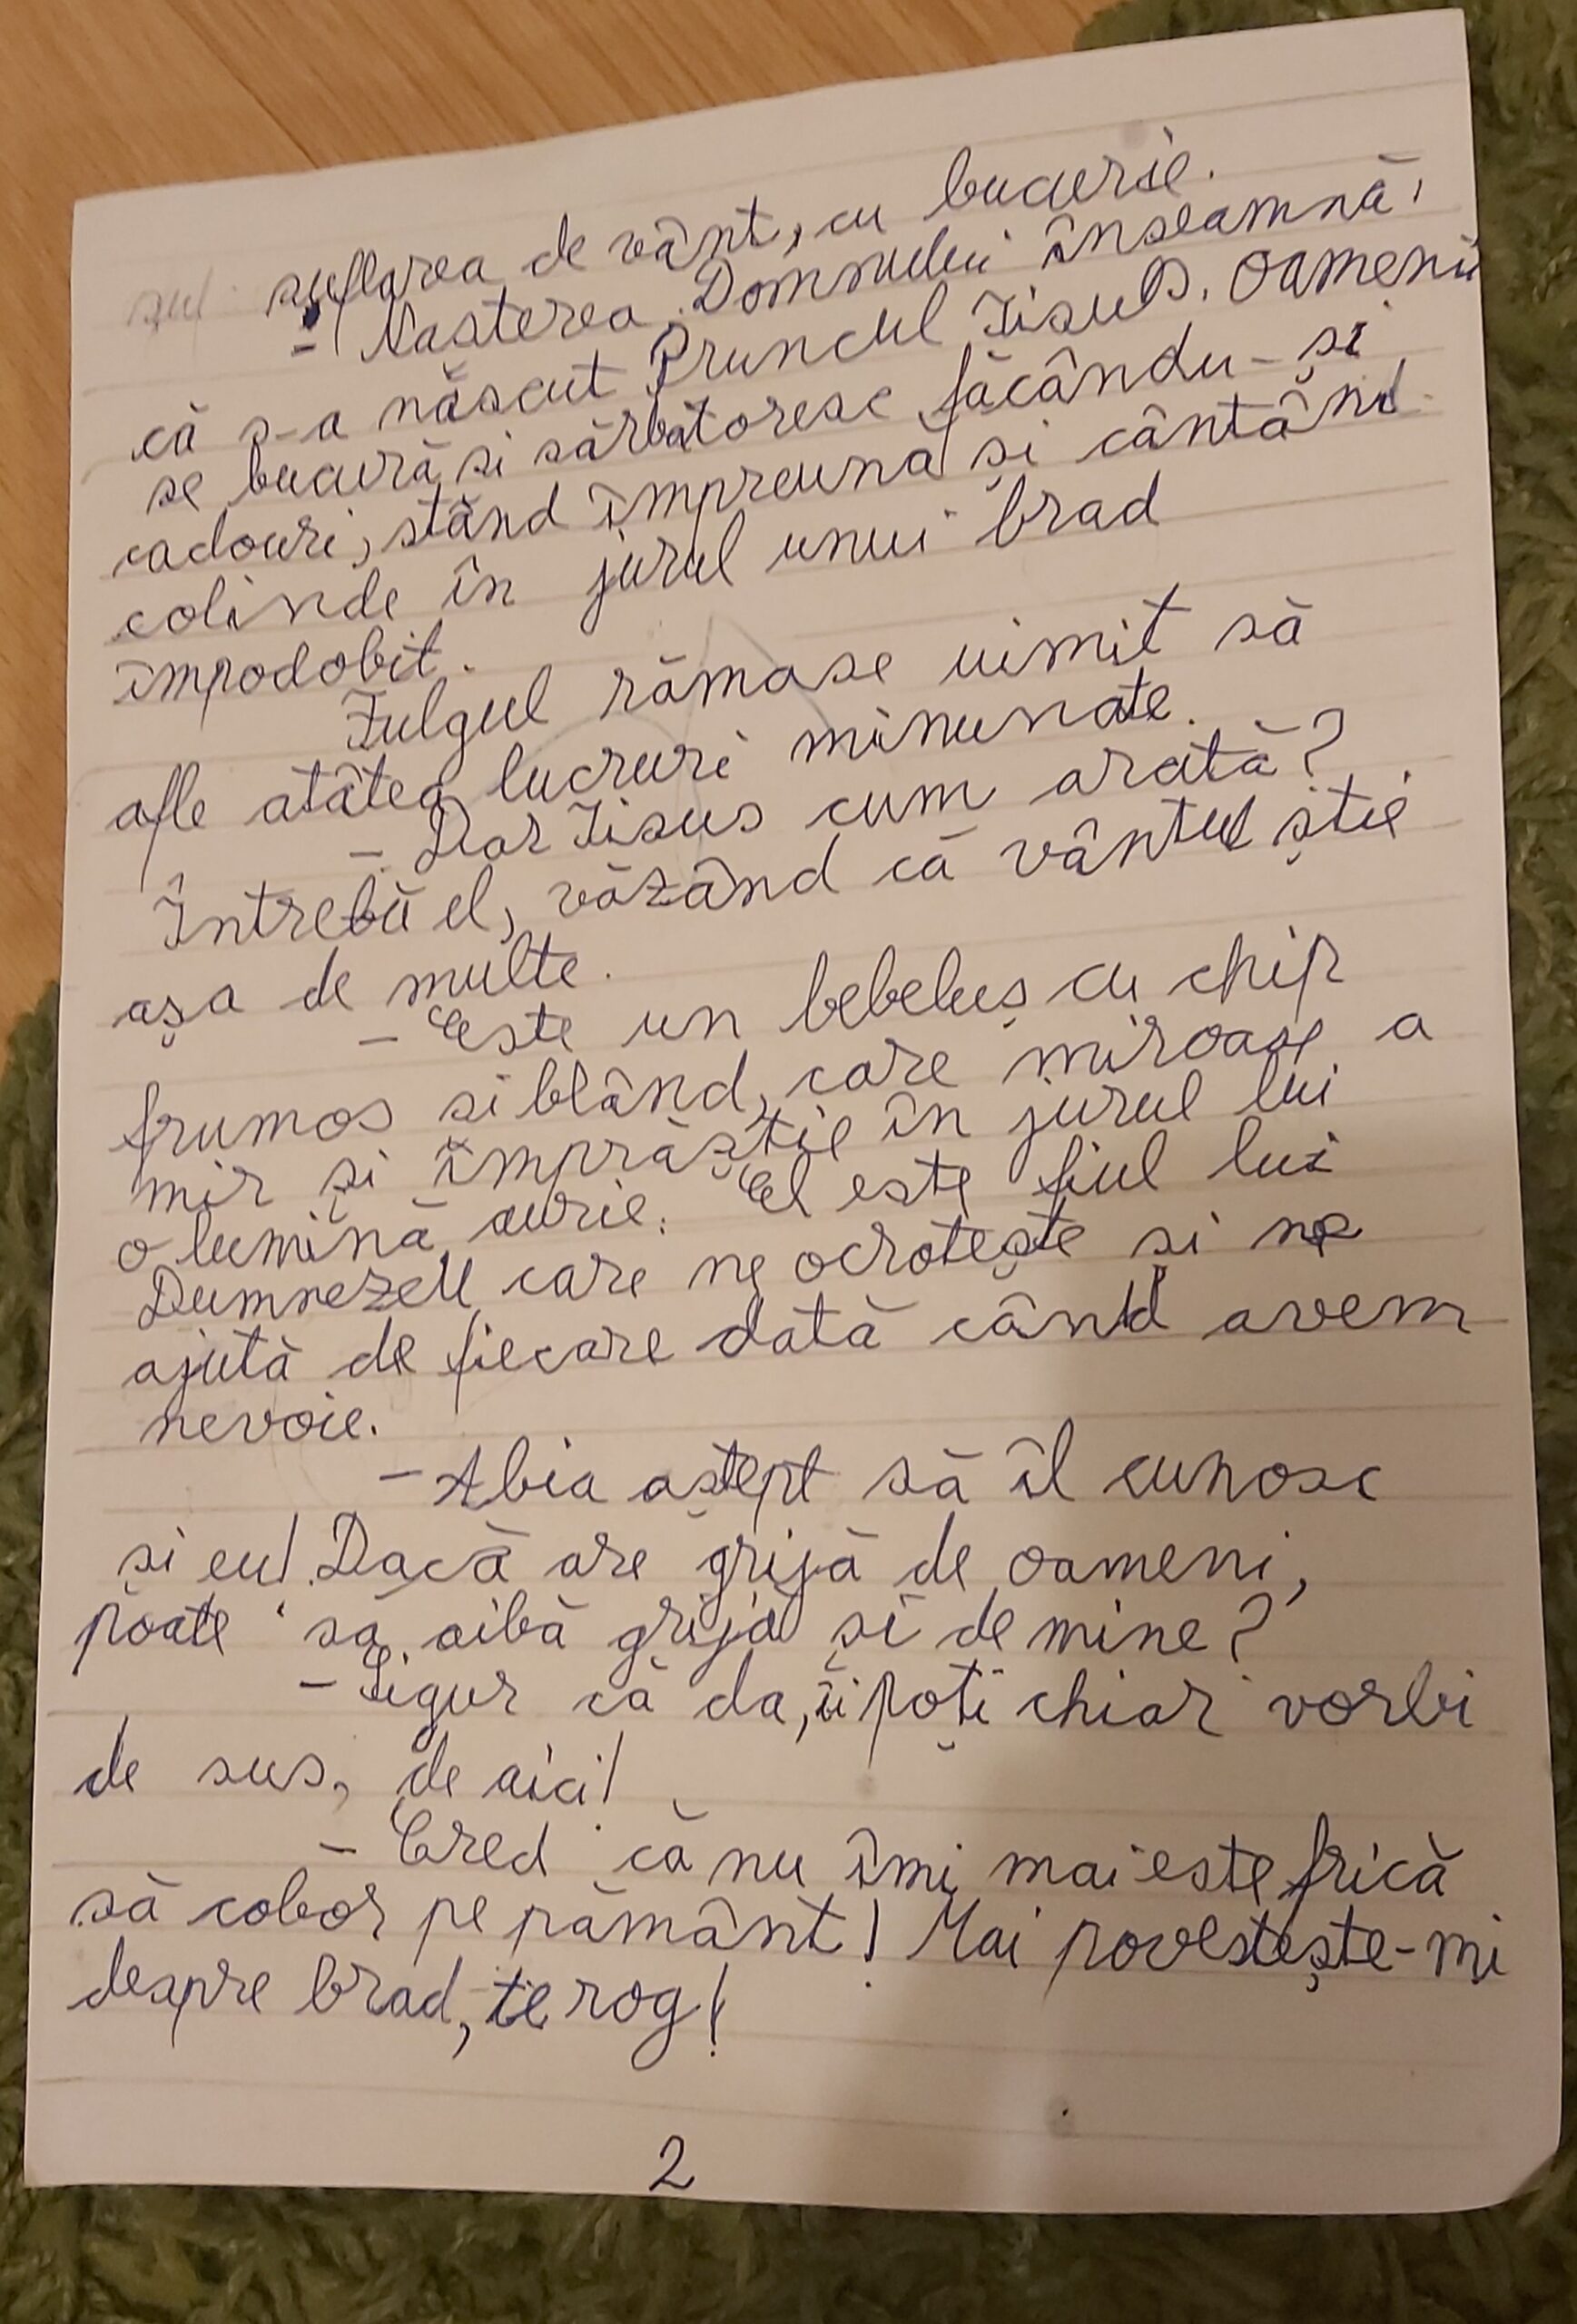 suflarea de vânt, cu bucurie.
- Nasterea Domnului înseamnă
că s-a născut Pruncul Iisus. Oamenii
se bucură si sărbătoresc făcându-și
cadouri, stând împreună și cântând
colinde în jurul unui brad
împodobit.
Fulgul rămase uimit să
afle atâtea lucruri minunate.
- Dar Iisus cum arată?
Întrebă el, văzând că vântul știe
așa de multe.
- Este un bebeluș cu chip
frumos si blând, care miroase a
mir și împrăștie în jurul lui
o lumină aurie. El este fiul lui
Dumnezeu care ne ocrotește și ne
ajută de fiecare dată când avem
nevoie.
- Abia aștept să îl cunosc
si eu! Dacă are grijă de oameni,
poate să aibă grijă și de mine?
- Sigur că da, îi poți chiar vorbi
de sus, de aici!
- Cred că nu îmi mai este frică
să cobor pe pământ! Mai povestește-mi
despre brad, te rog!
2